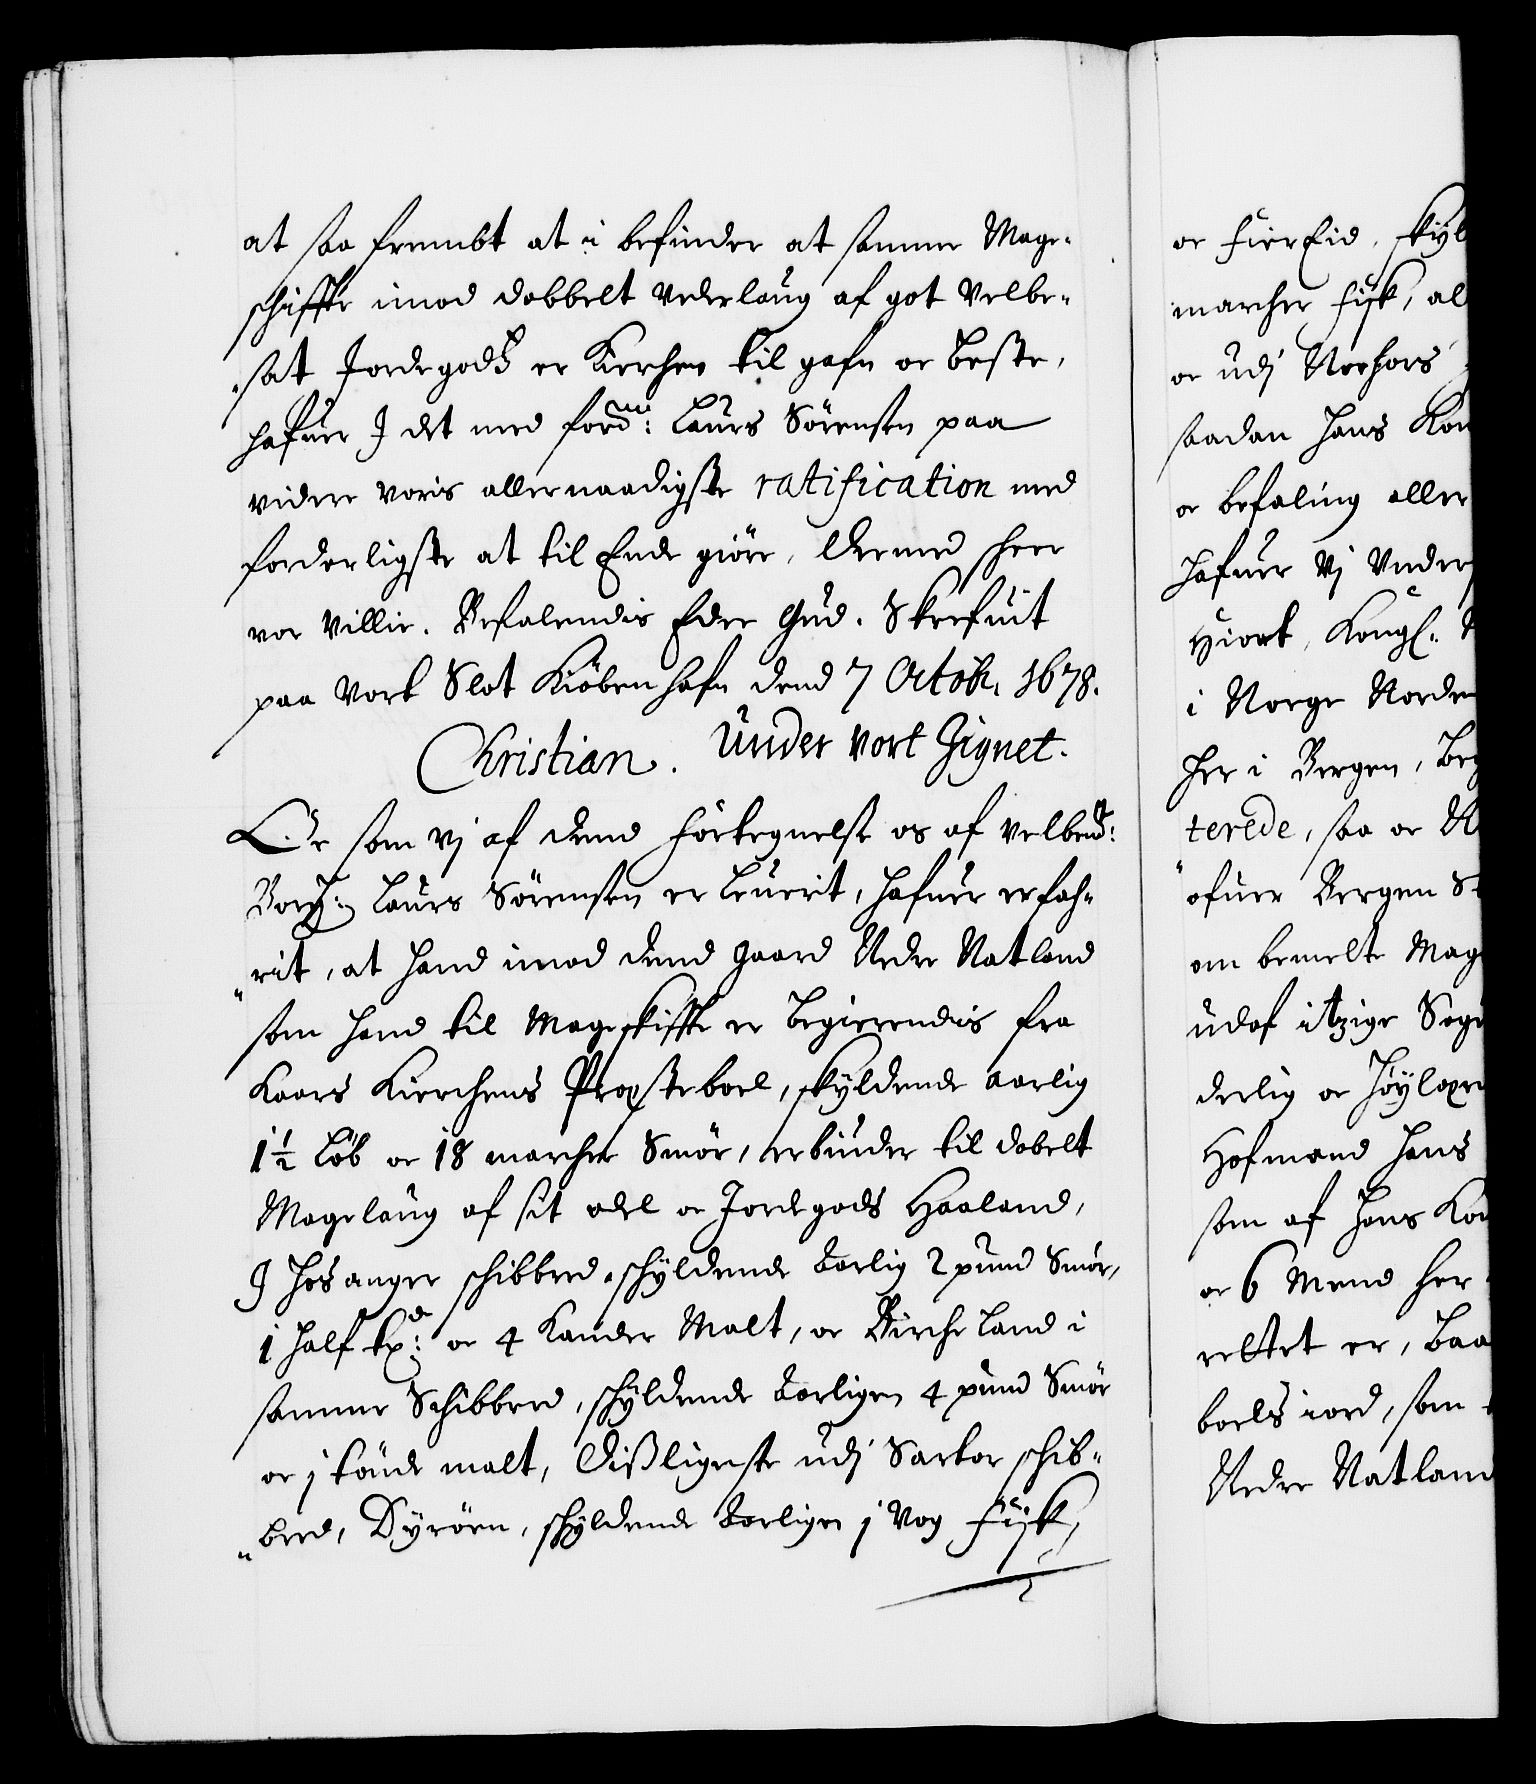 at saa frembt at i befinder at samme Mage-
schifftte imod dobbelt Vederlaug af got Velbe-
sat Jordegods er Kirchen til gafn oc beste,
hafuer I det med for.ne: Laurs Sörensen paa
videre voris allernaadigste ratification med
forderligste at til Ende giöre, Dermed scheer
vor Villie. Befalendis Eder Gud. Skrefuit
paa Vort Slot Kiöbenhafn dend 7 Octob. 1678.
Christian. Under Vort Zignet.
Da som Vj af dend Förtegnelse os af Velbemt:
Borg: Laurs Sörensen er leuerit, hafuer erfah-
rit, at hand imod dend gaard Nedre Natland
som hand til Mageskiffte er begierendis fra
Kaars Kierchens Prousteboel, skyldende aarlig
1½ Löb oc 18 marcher Smör, erbiuder til dobelt
Magelaug af sit odel oc Jordegods Haaland,
I Hosanger schibbred, schyldende aarlig 2 pund Smör,
1 half tp: oc 4 Kander Malt, oc Bircheland i
samme Schibbred, schyldende aarligen 4 pund Smör
oc j tönde malt, Dißligeste udj Sartor schib-
bred, Dyröen, schyldende aarligen j Vog Fisk,
oc FierEid, skyl
marcher fisk, al
oc udj Norhors
saadan Hans Kon
oc befaling aller
Hafuer Vj Under
Hiort, Kongl.
i Norge Norden
her i Bergen, Beg
terede, saa oc
ofuer Bergen St
om bemelte Mag
udaf itzige Sog
derlig oc Höylær
Hofmand Hans
som af Hans Kon
oc 6 Mend her
rettet er, baa
boels iord, som
Nedre Natland